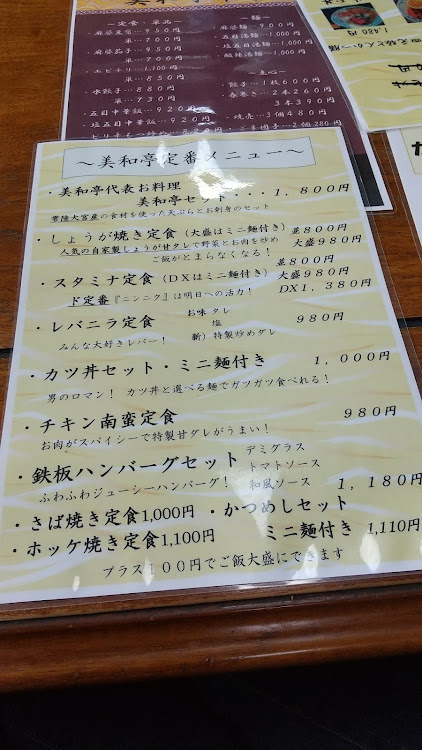 ～定食・単品～
・麻婆豆腐…９５０円
単…７００円
・麻婆茄子…９５０円
単…７００円
・エビチリ…1,100円
単…８５０円
・水餃子……８８０円
単…７３０円
・五目中華飯…９２０円
・塩五目中華飯…９２０円
～麺～
・麻婆麺…９００円
・五目湯麺…1,000円
・塩五目湯麺…1,000円
・酸辣湯麺…1,000円
～点心～
・餃子…５個600円
・春巻き…２本260円
３本390円
・焼売…３個480円
1,480円
～美和亭定番メニュー～
・美和亭代表お料理
美和亭セット・・・１，８００円
常陸大宮産の食材を使った天ぷらとお刺身のセット
・しょうが焼き定食（大盛はミニ麺付き）並８００円
人気の自家製しょうが甘タレで野菜とお肉を炒め 大盛９８０円
ご飯がとまらなくなる！
・スタミナ定食（ＤＸはミニ麺付き）並８００円
大盛９８０円
ド定番『ニンニク』は明日への活力！ ＤＸ１，３８０円
・レバニラ定食 お味 タレ ９８０円
塩
みんな大好きレバー！ 新）特製炒めダレ
・カツ丼セット・ミニ麺付き １，０００円
男のロマン！ カツ丼と選べる麺でガツガツ食べれる！
・チキン南蛮定食 ９８０円
お肉がスパイシーで特製甘ダレがうまい！
・鉄板ハンバーグセット デミグラス
トマトソース
ふわふわジューシーハンバーグ！ 和風ソース １，１８０円
・さば焼き定食1,000円 ・かつめしセット
・ホッケ焼き定食1,100円 ミニ麺付き 1,110円
プラス１００円でご飯大盛にできます